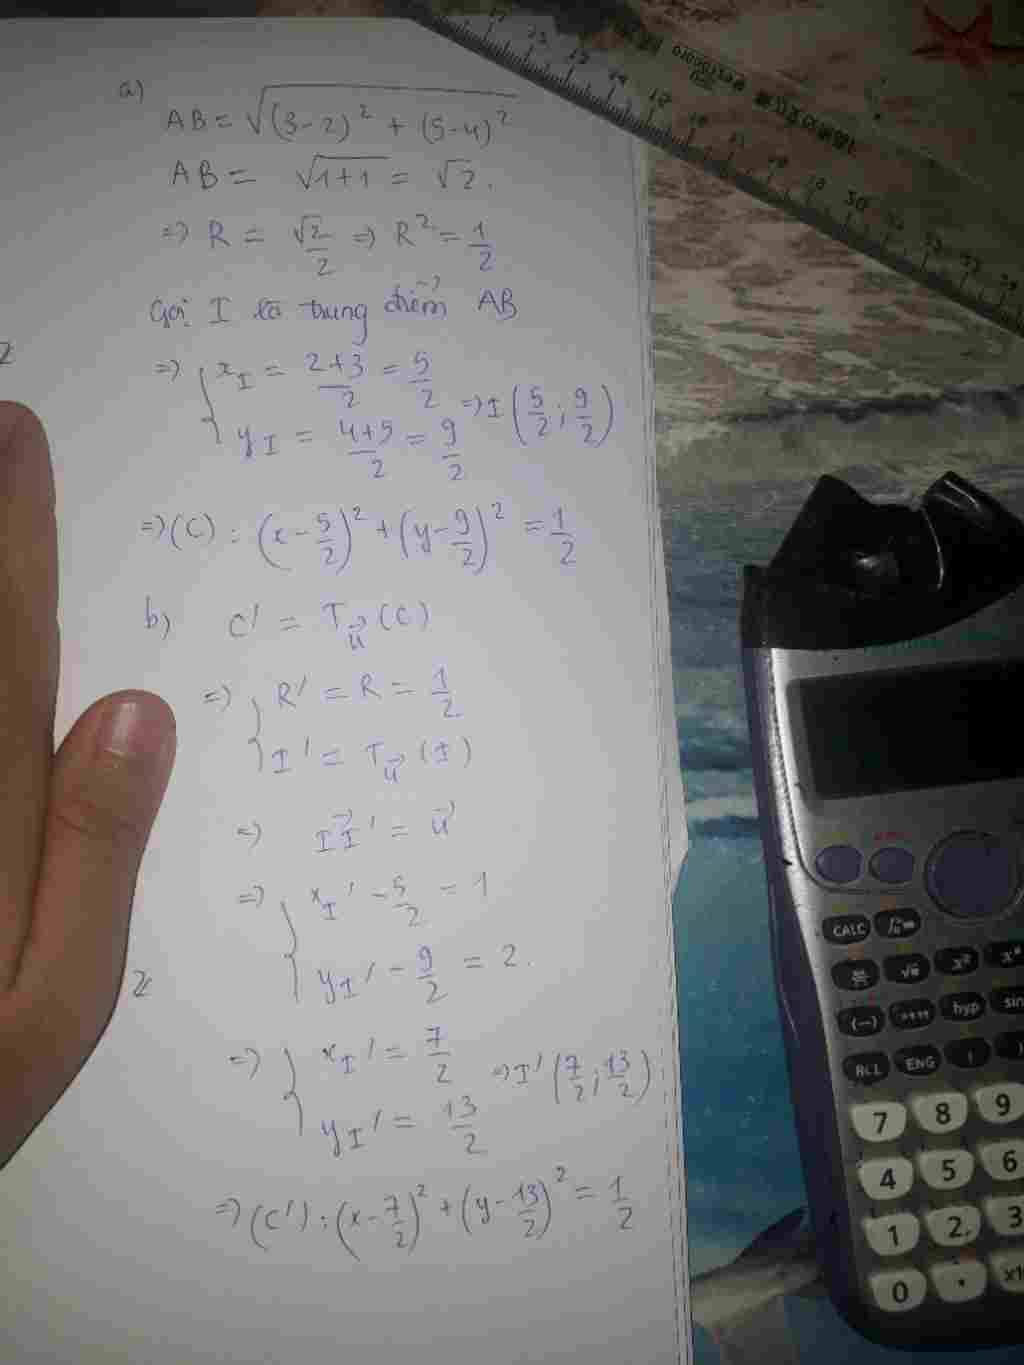 a)
AB = √(3-2)² + (5-4)²
AB = √1+1 = √2.
=> R = √2/2 => R² = 1/2
Gọi I là trung điểm AB
=> { x_I = 2+3/2 = 5/2
y_I = 4+5/2 = 9/2 => I (5/2; 9/2)
=> (C) : (x - 5/2)² + (y - 9/2)² = 1/2
b) C' = T_u⃗ (C)
=> { R' = R = 1/2
I' = T_u⃗ (I)
=> II'⃗ = u⃗
=> { x_I' - 5/2 = 1
y_I' - 9/2 = 2.
=> { x_I' = 7/2
y_I' = 13/2 => I' (7/2; 13/2)
=> (C') : (x - 7/2)² + (y - 13/2)² = 1/2
CALC
(-) °''' hyp sin
RCL ENG ( )
7 8 9
4 5 6
1 2 3
0 . x1